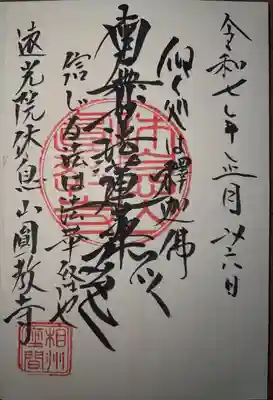 令和七年正月廿六日
仰ぐ処は釋迦佛
南無妙法蓮華経
信ずる法は法華経也
遠光院休息山圓教寺
相州
座間